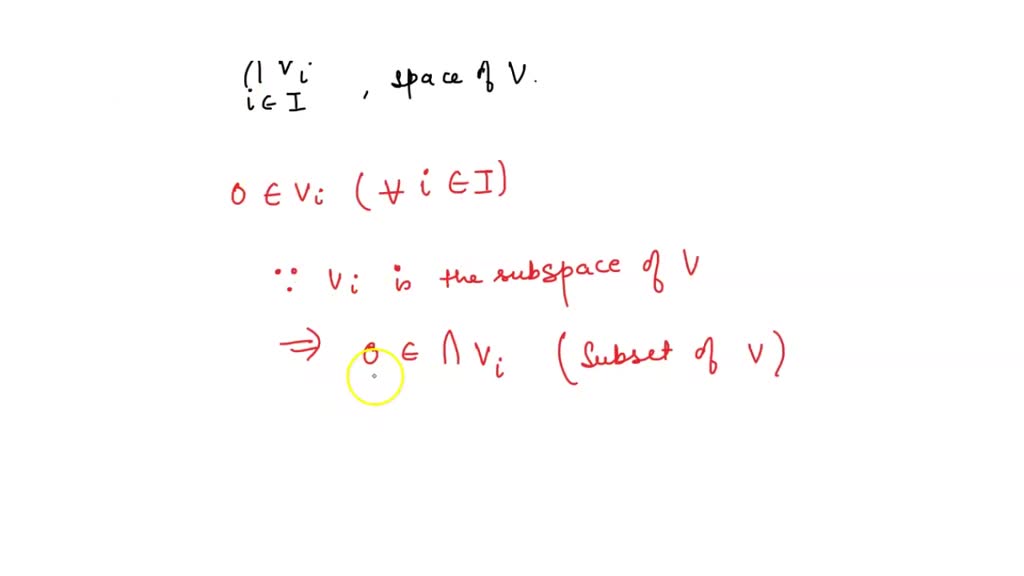 ⋂ Vi , space of V.
i ∈ I
0 ∈ Vi (∀ i ∈ I)
∵ Vi is the subspace of V
⇒ 0 ∈ ⋂ Vi (Subset of V)